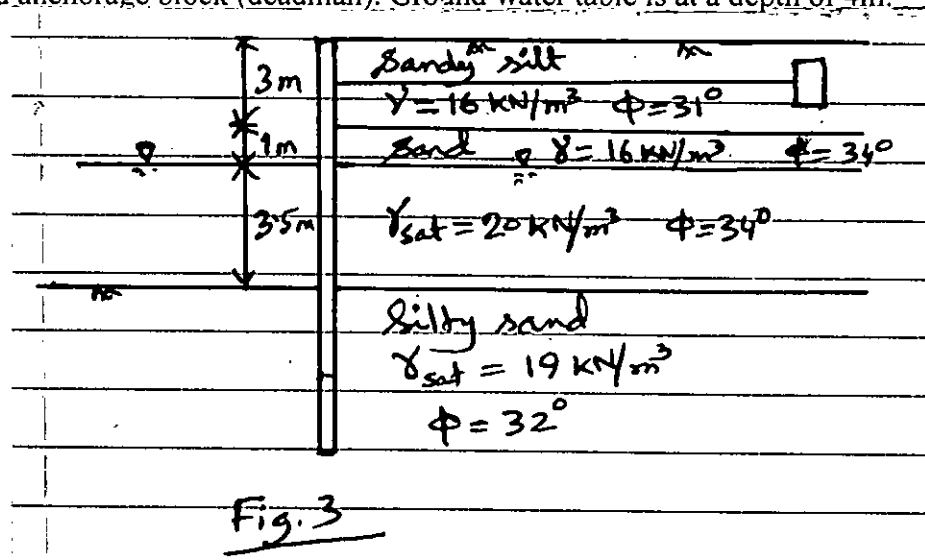 d anchorage block (deadman). Ground water table is at a depth of 4m.
3m
Sandy silt
γ = 16 KN/m³ Φ = 31°
1m
Sand γ = 16 KN/m³ Φ = 34°
3.5m
γsat = 20 KN/m³ Φ = 34°
Silty sand
γsat = 19 KN/m³
Φ = 32°
Fig. 3